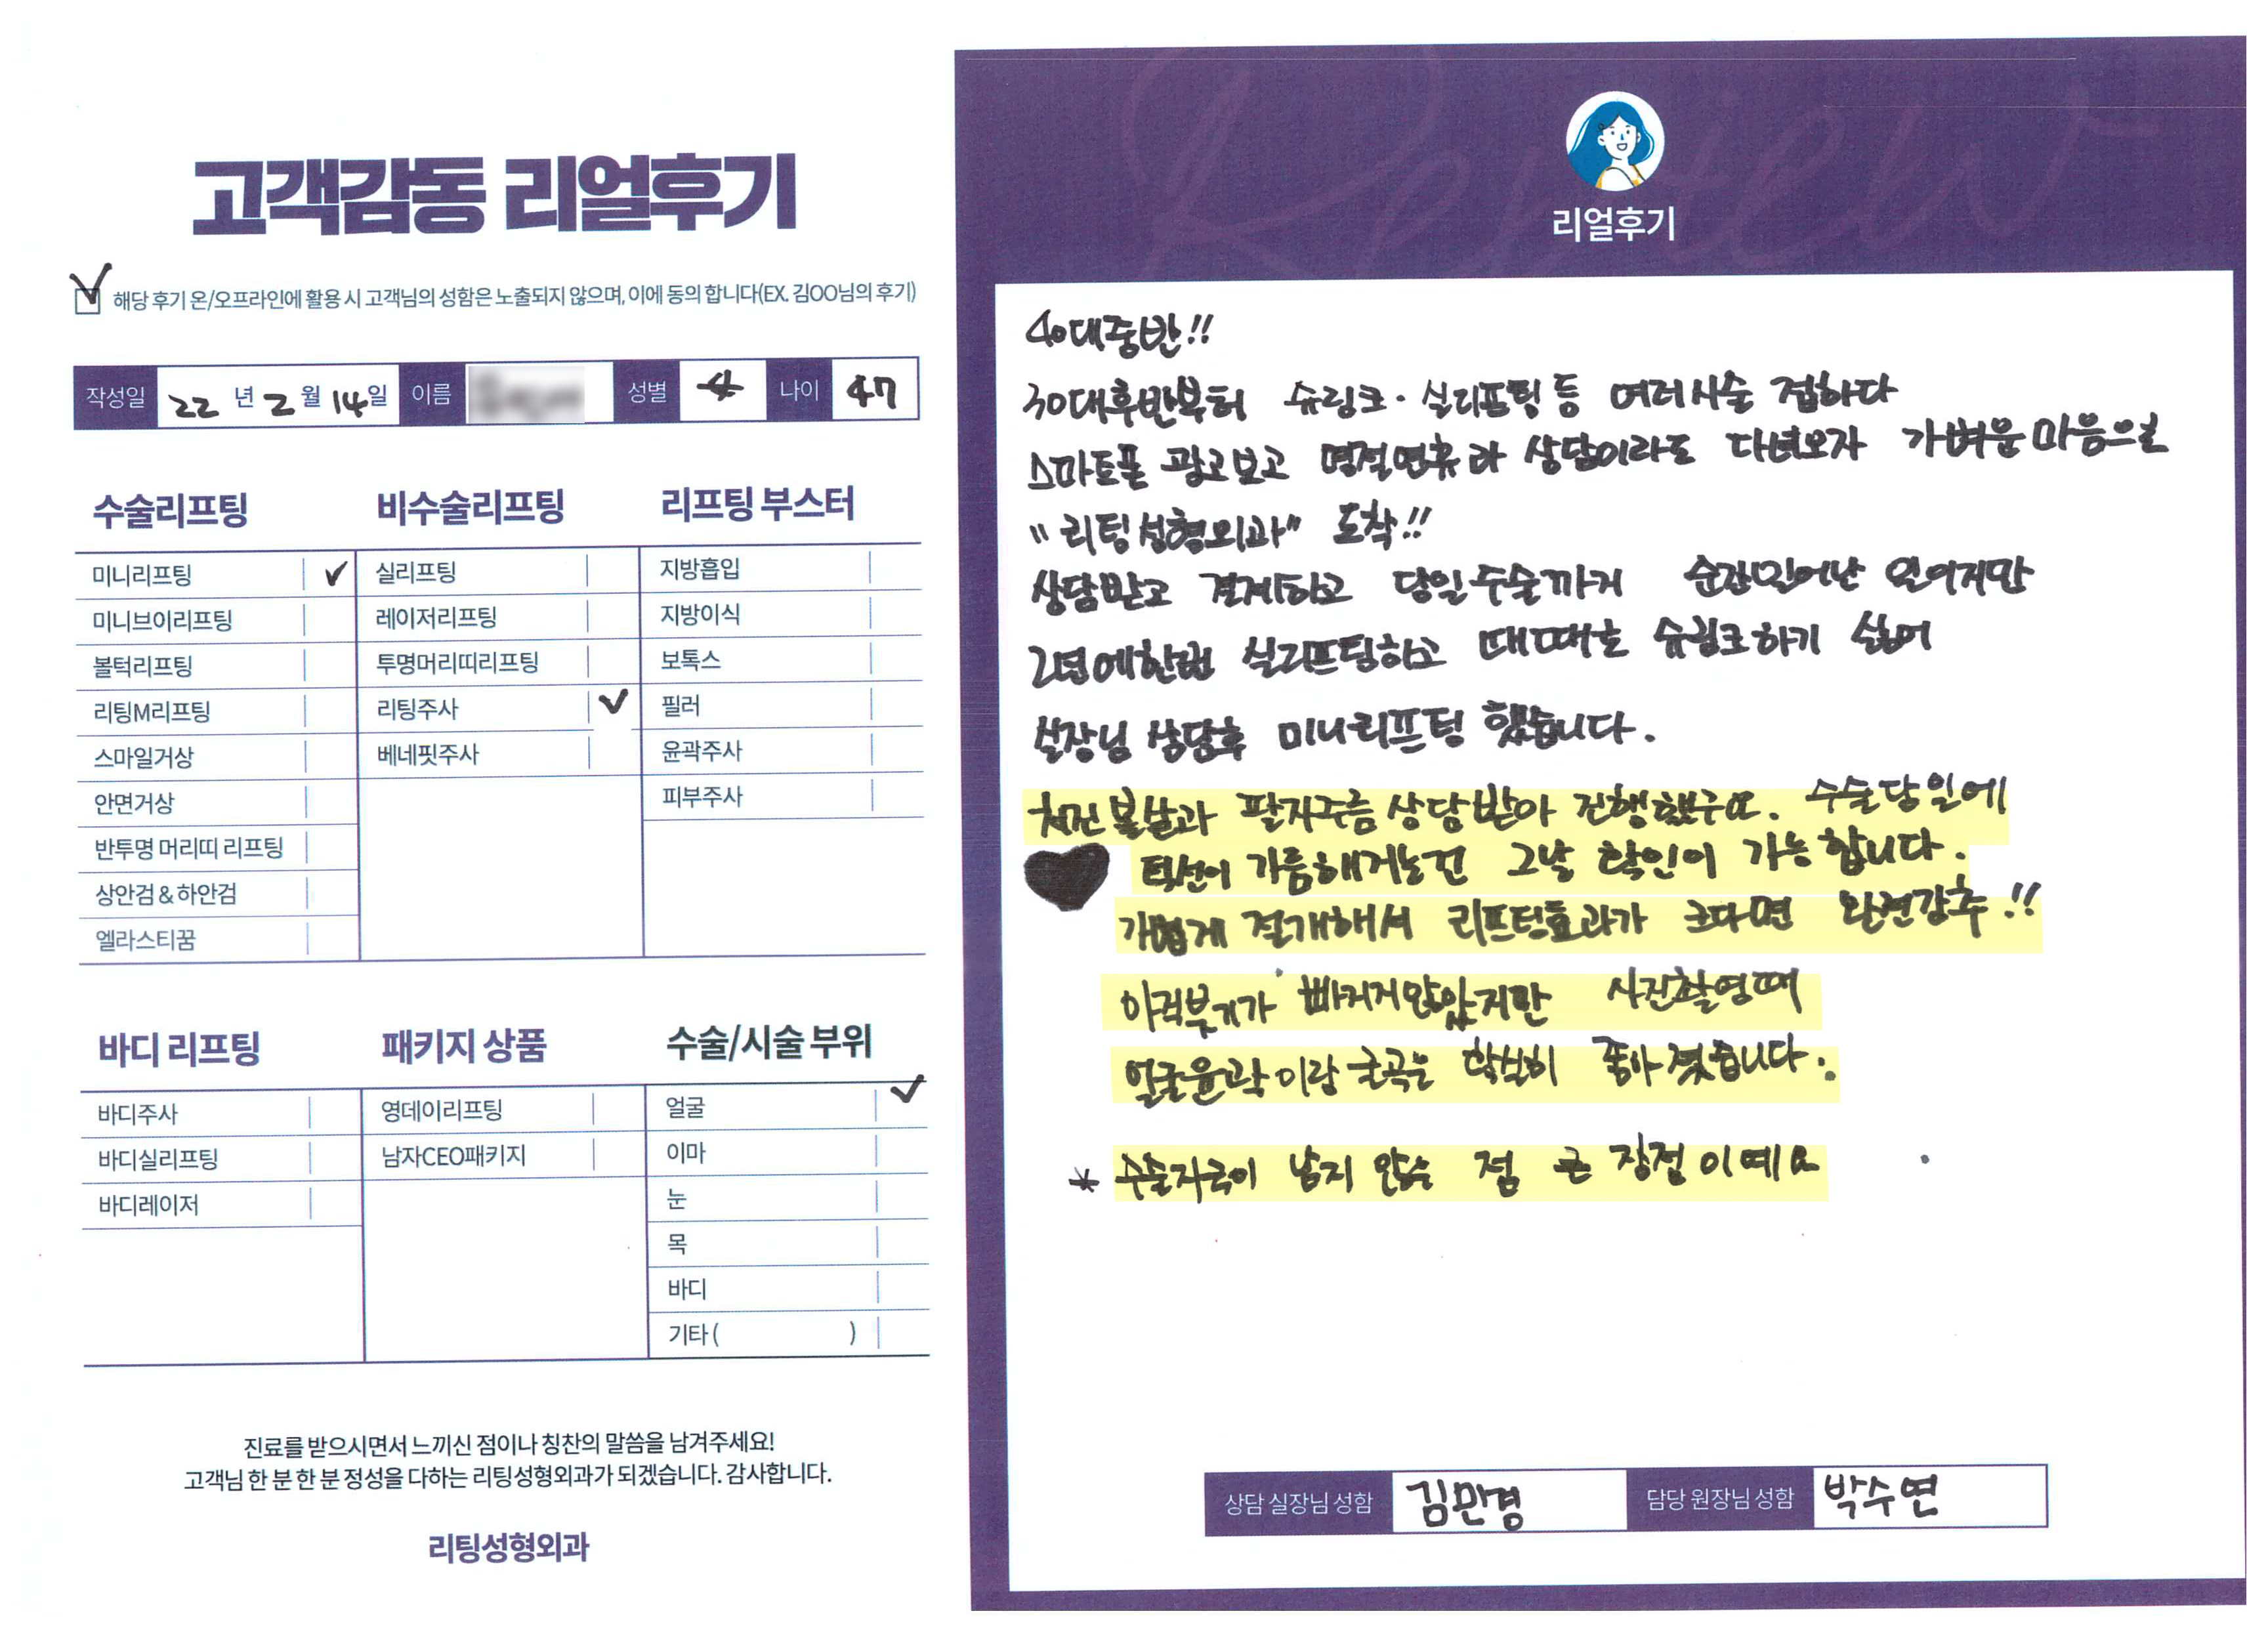 고객감동 리얼후기
해당 후기 온/오프라인에 활용 시 고객님의 성함은 노출되지 않으며, 이에 동의 합니다(EX. 김OO님의 후기)
작성일 22 년 2 월 14일 이름 성별 나이 47
수술리프팅 비수술리프팅 리프팅 부스터
미니리프팅 실리프팅 지방흡입
미니브이리프팅 레이저리프팅 지방이식
볼턱리프팅 투명머리띠리프팅 보톡스
리팅M리프팅 리팅주사 필러
스마일거상 베네핏주사 윤곽주사
안면거상 피부주사
반투명 머리띠 리프팅
상안검 & 하안검
엘라스티꿈
바디 리프팅 패키지 상품 수술/시술 부위
바디주사 영데이리프팅 얼굴
바디실리프팅 남자CEO패키지 이마
바디레이저 눈
목
바디
기타 ( )
진료를 받으시면서 느끼신 점이나 칭찬의 말씀을 남겨주세요!
고객님 한 분 한 분 정성을 다하는 리팅성형외과가 되겠습니다. 감사합니다.
리팅성형외과
Review
리얼후기
40대중반!!
30대후반부터 슈링크·실리프팅 등 여러시술 접하다
스마트폰 광고보고 명절연휴라 상담이라도 다녀오자 가벼운 마음으로
"리팅성형외과" 도착!!
상담받고 결제하고 당일수술까지 순간일어난 일이지만
2년에한번 실리프팅하고 때때로 슈링크하기 싫어
실장님 상담후 미니리프팅 했습니다.
처진 볼살과 팔자주름 상담받아 진행했구요. 수술당일에
턱선이 갸름해지는건 그날 확인이 가능합니다.
가볍게 절개해서 리프팅효과가 크다면 완전강추!!
아직부기가 빠지지않았지만 사진촬영때
얼굴윤곽이랑 굴곡은 확실히 좋아졌습니다.
* 수술자국이 남지 않는 점 큰 장점이예요
상담 실장님 성함 김민경 담당 원장님 성함 박수연